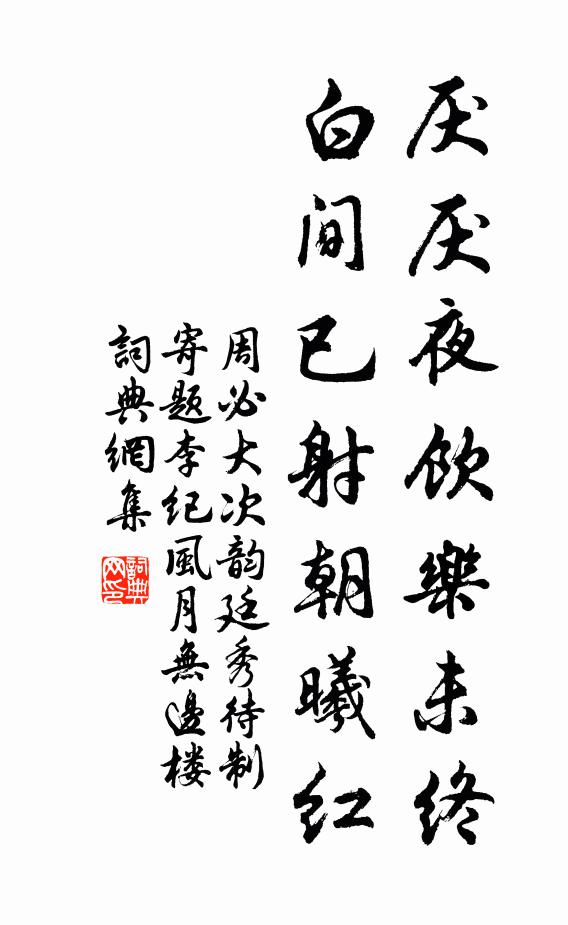 厌厌夜飲樂未终
白间已射朝曦红
周必大次韵廷秀待制
寄题李纪風月無邊楼
詞典網集
詞典网印